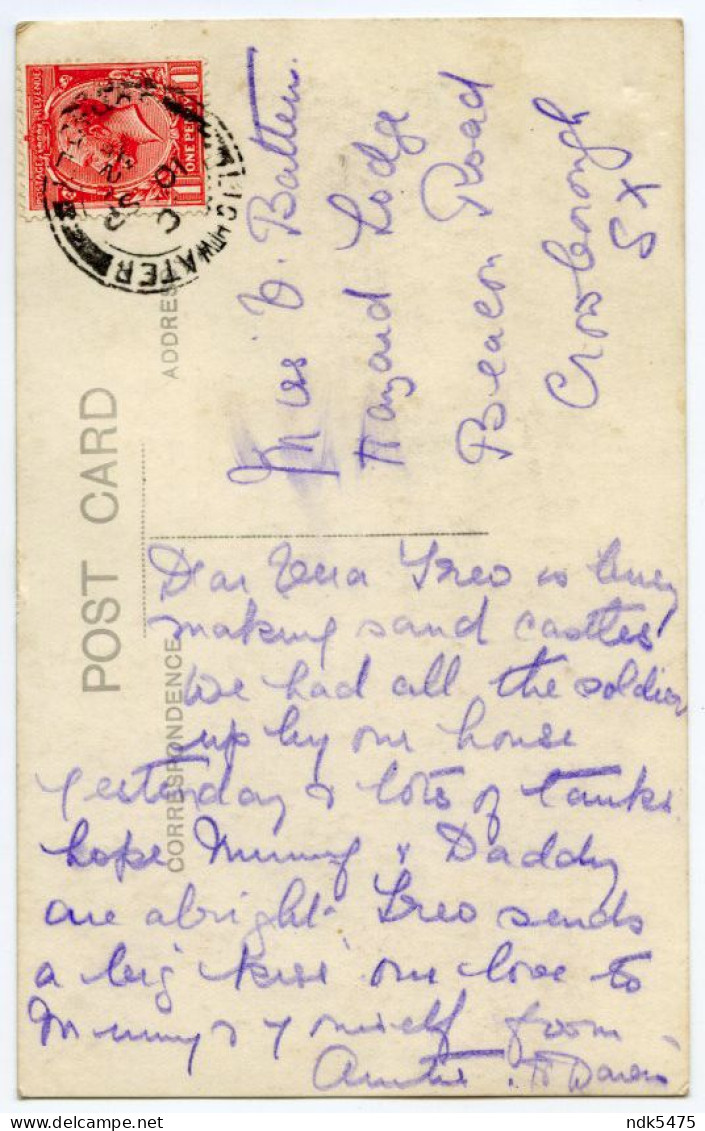 POST CARD
CORRESPONDENCE
ADDRESS
POSTAGE REVENUE
ONE PENNY
LIGHTWATER
Miss V. Batten.
Hazard Lodge
Beacon Road
Crowborough
SX
Dear Vera is busy
making sand castles
We had all the soldiers
up by our house
yesterday & lots of tanks
hope Mummy & Daddy
are alright sends
a big kiss our love to
Mummy & yourself from
Auntie
ndk5475